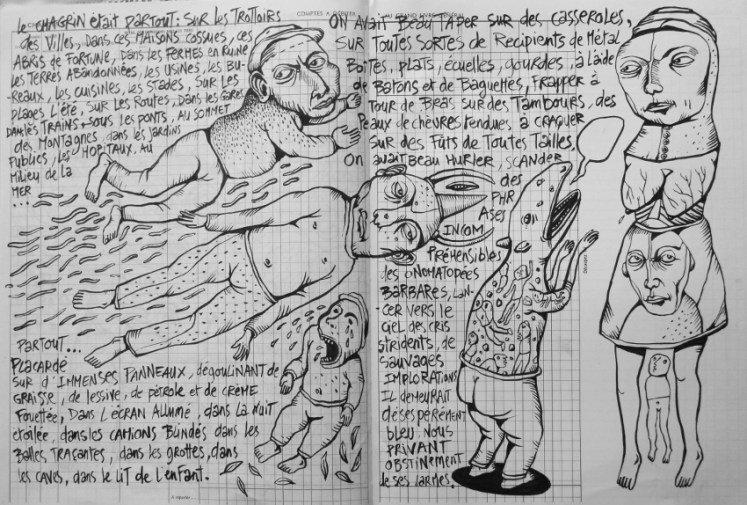 Le CHAGRIN était PARTOUT : SUR les TROTTOIRS
des VILLES, DANS CES MAISONS COSSUES, CES
ABRIS de FORTUNE, DANS les FERMES EN RUINE
LES TERRES ABANDONNÉES, les USINES, les BU-
-REAUX, les CUISINES, les STADES, SUR les
PLAGES L'ÉTÉ, SUR les ROUTES, DANS les GARES
DANS les TRAINS, SOUS les PONTS, AU SOMMET
des MONTAGNES, dans les JARDINS
PUBLICS, les HOPITAUX. AU
MILIEU de LA
MER
...
PARTOUT...
PLACARDÉ
SUR d'IMMENSES PANNEAUX, dégoulinant de
GRAISSE, de lessive, de pétrole et de CRÈME
Fouettée, DANS L'ÉCRAN ALLUMÉ, dans LA NUIT
étoilée, dans les CAMIONS BLINDÉS dans les
BALLES TRAÇANTES, dans les grottes, dans
les CAVES, dans le LIT de L'ENFANT.
COMPTES A
ON AVAIT BEAU TAPER SUR des CASSEROLES,
SUR TOUTES SORTES de RECIPIENTS de MÉTAL
BOITES, PLATS, ÉCUELLES, GOURDES, à L'AIDE
de BATONS et de BAGUETTES, FRAPPER à
TOUR de BRAS SUR des TAMBOURS, des
PEAUX de CHÈVRES TENDUES à CRAQUER
SUR des FÛTS de TOUTES TAILLES.
ON AVAIT BEAU HURLER, SCANDER
des
PHR
ASES
INCOM
PRÉHENSIBLES
des ONOMATOPÉES
BARBARES, LAN-
CER VERS le
CIEL des CRIS
STRIDENTS, de
SAUVAGES
IMPLORATIONS
IL DEMEURAIT
DÉSESPÉRÉMENT
BLEU NOUS
PRIVANT
OBSTINÉMENT
de ses LARMES.